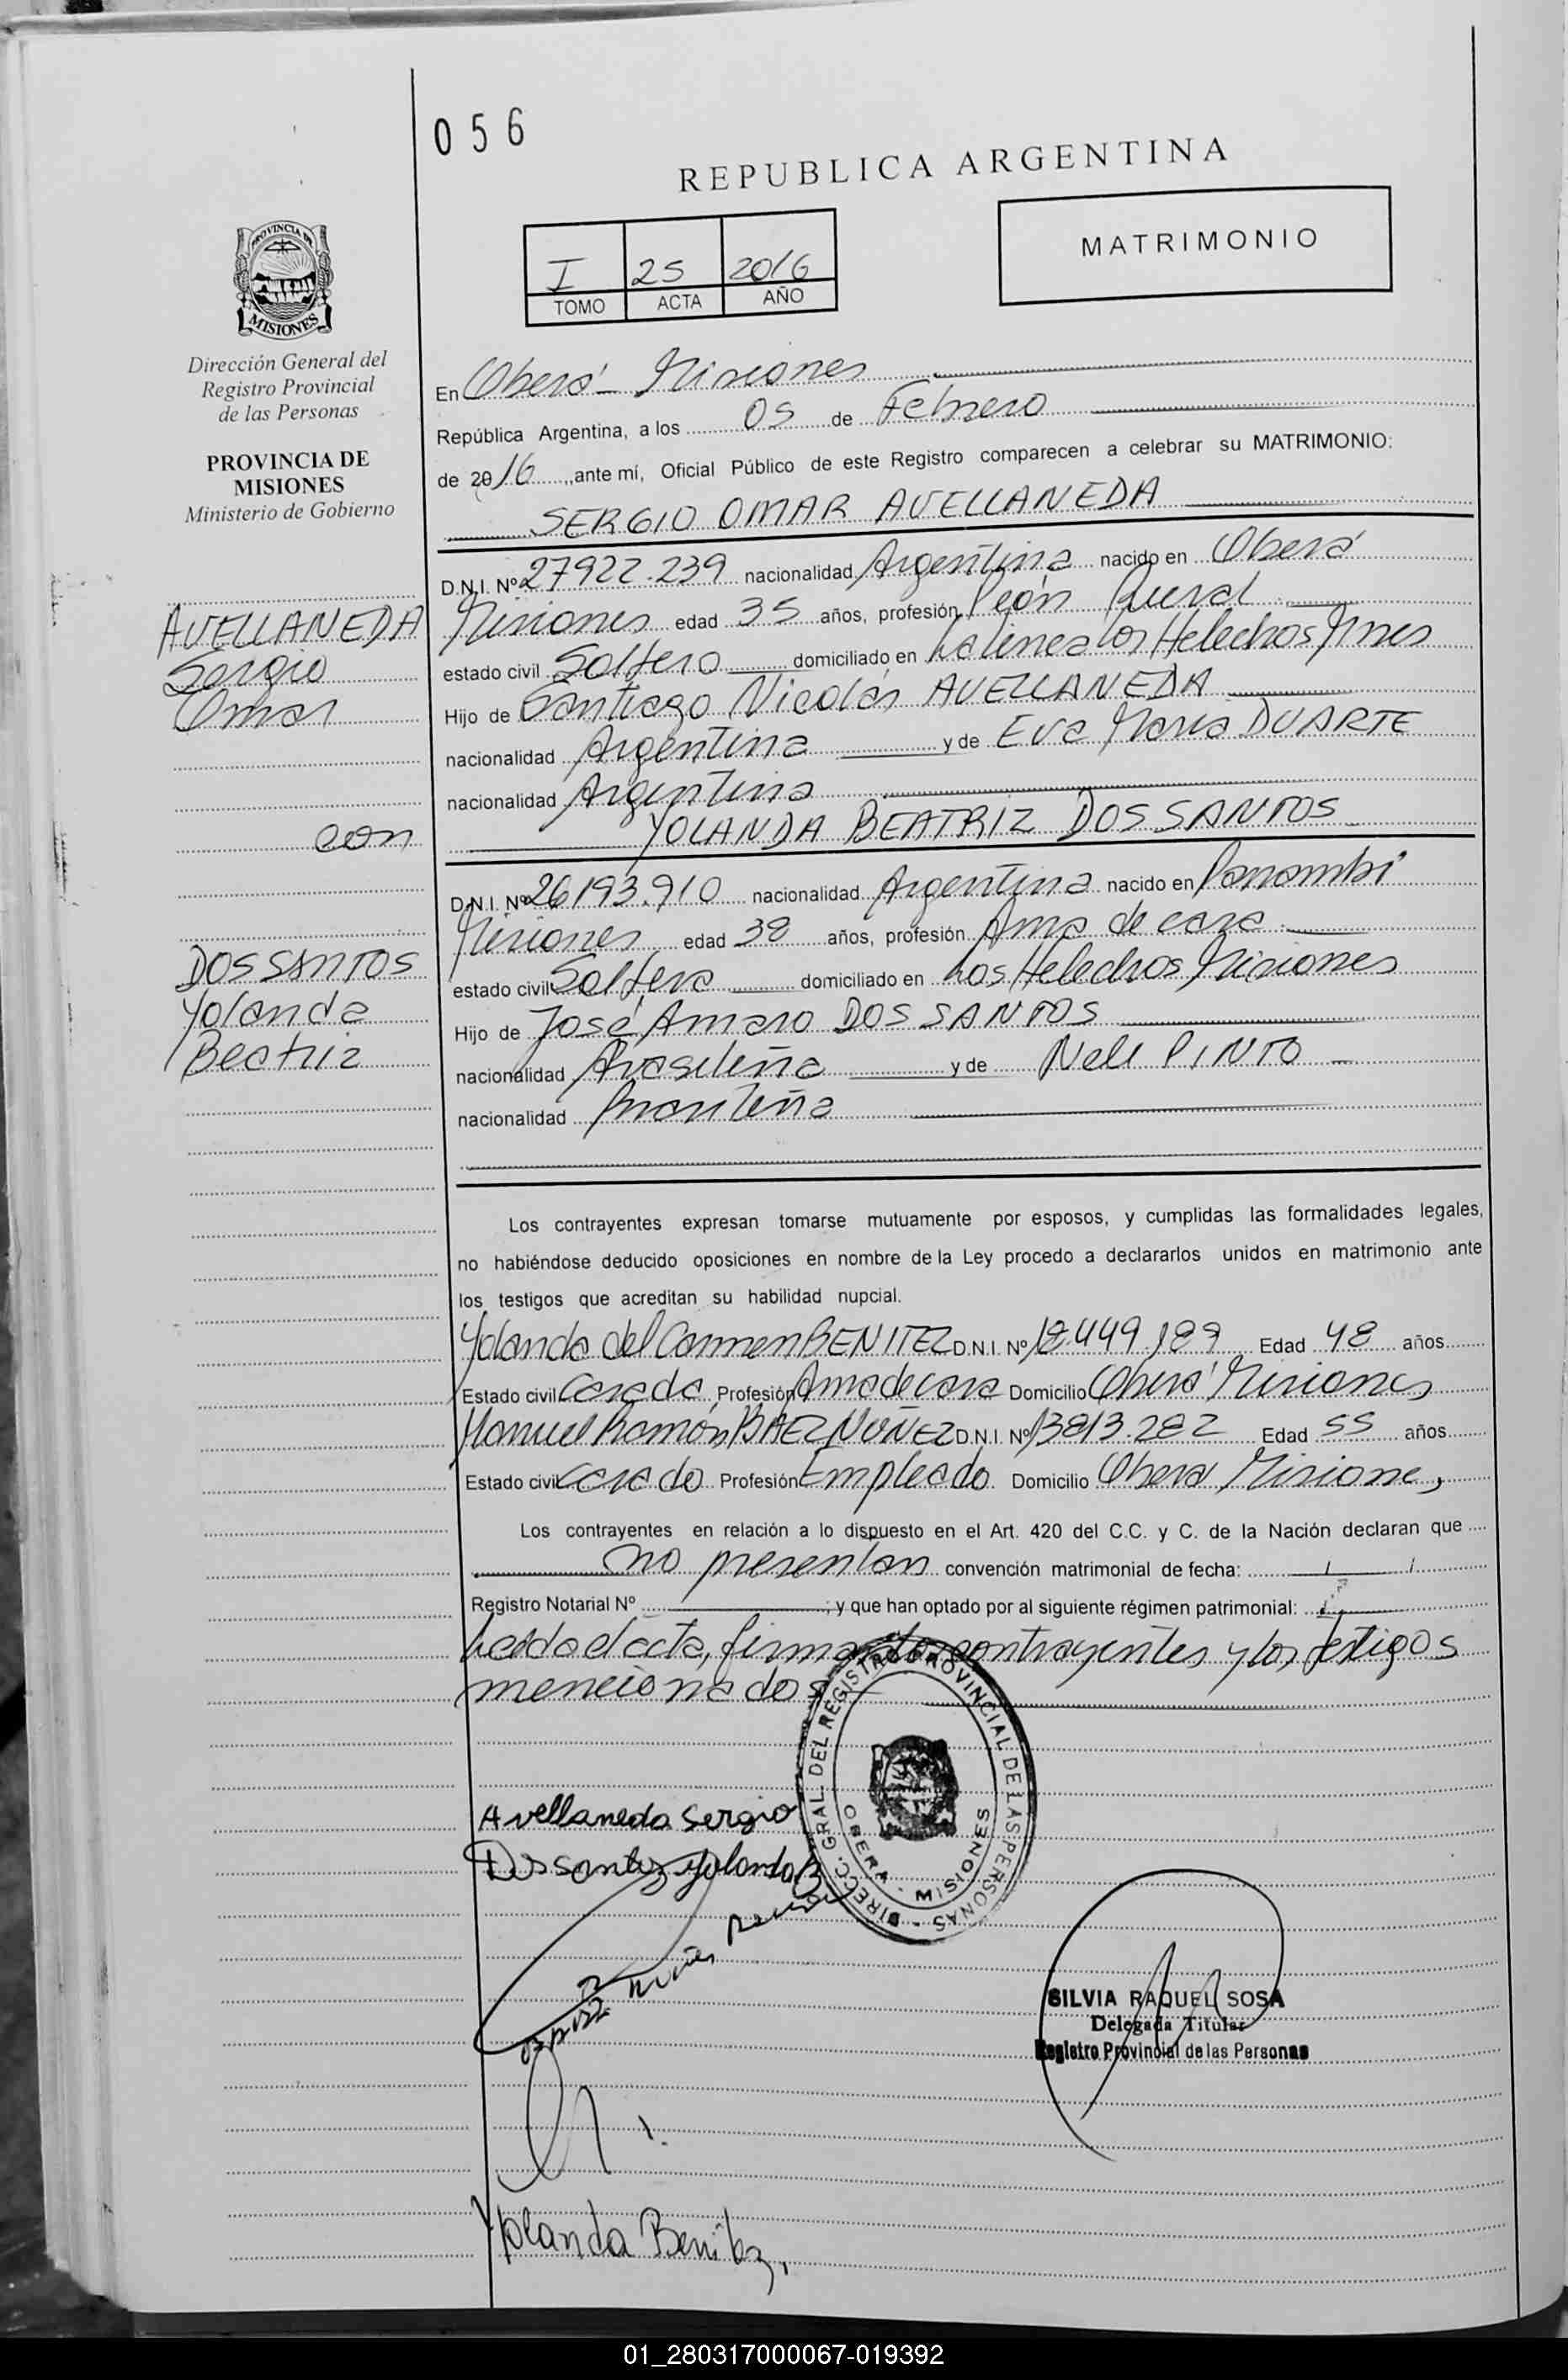 056
REPUBLICA ARGENTINA
MATRIMONIO
I 25 2016
TOMO ACTA AÑO
PROVINCIA DE
MISIONES
Dirección General del
Registro Provincial
de las Personas
PROVINCIA DE
MISIONES
Ministerio de Gobierno
AVELLANEDA
Sergio
Omar
con
DOS SANTOS
Yolanda
Beatriz
En Oberá - Misiones
República Argentina, a los 05 de Febrero
de 2016 ,,ante mí, Oficial Público de este Registro comparecen a celebrar su MATRIMONIO:
SERGIO OMAR AVELLANEDA
D.N.I. Nº 27922.239 nacionalidad Argentina nacido en Oberá
Misiones edad 35 años, profesión Peón Rural
estado civil Soltero domiciliado en La línea Los Helechos Mnes
Hijo de Santiago Nicolás AVELLANEDA
nacionalidad Argentina y de Eva María DUARTE
nacionalidad Argentina
YOLANDA BEATRIZ DOS SANTOS
D.N.I. Nº 26193.910 nacionalidad Argentina nacido en Panambí
Misiones edad 38 años, profesión Ama de casa
estado civil Soltera domiciliado en Los Helechos Misiones
Hijo de José Amaro DOS SANTOS
nacionalidad Brasileña y de Neli PINTO
nacionalidad Brasileña
Los contrayentes expresan tomarse mutuamente por esposos, y cumplidas las formalidades legales,
no habiéndose deducido oposiciones en nombre de la Ley procedo a declararlos unidos en matrimonio ante
los testigos que acreditan su habilidad nupcial.
Yolanda del Carmen BENITEZ D.N.I. Nº 18.449.189 Edad 48 años
Estado civil Casada Profesión Ama de casa Domicilio Oberá Misiones
Manuel Ramón BAEZ NUÑEZ D.N.I. Nº 13813.282 Edad 55 años
Estado civil Casado Profesión Empleado Domicilio Oberá Misiones
Los contrayentes en relación a lo dispuesto en el Art. 420 del C.C. y C. de la Nación declaran que
no presentan convención matrimonial de fecha: / /
Registro Notarial Nº ; y que han optado por al siguiente régimen patrimonial:
Leída el acta, firman los contrayentes y los testigos
mencionados
DIRECC. GRAL. DEL REGISTRO PROVINCIAL DE LAS PERSONAS
OBERA - MISIONES
Avellaneda Sergio
Dos santos Yolanda B
SILVIA RAQUEL SOSA
Delegada Titular
Registro Provincial de las Personas
Yolanda Benitez
01_280317000067-019392